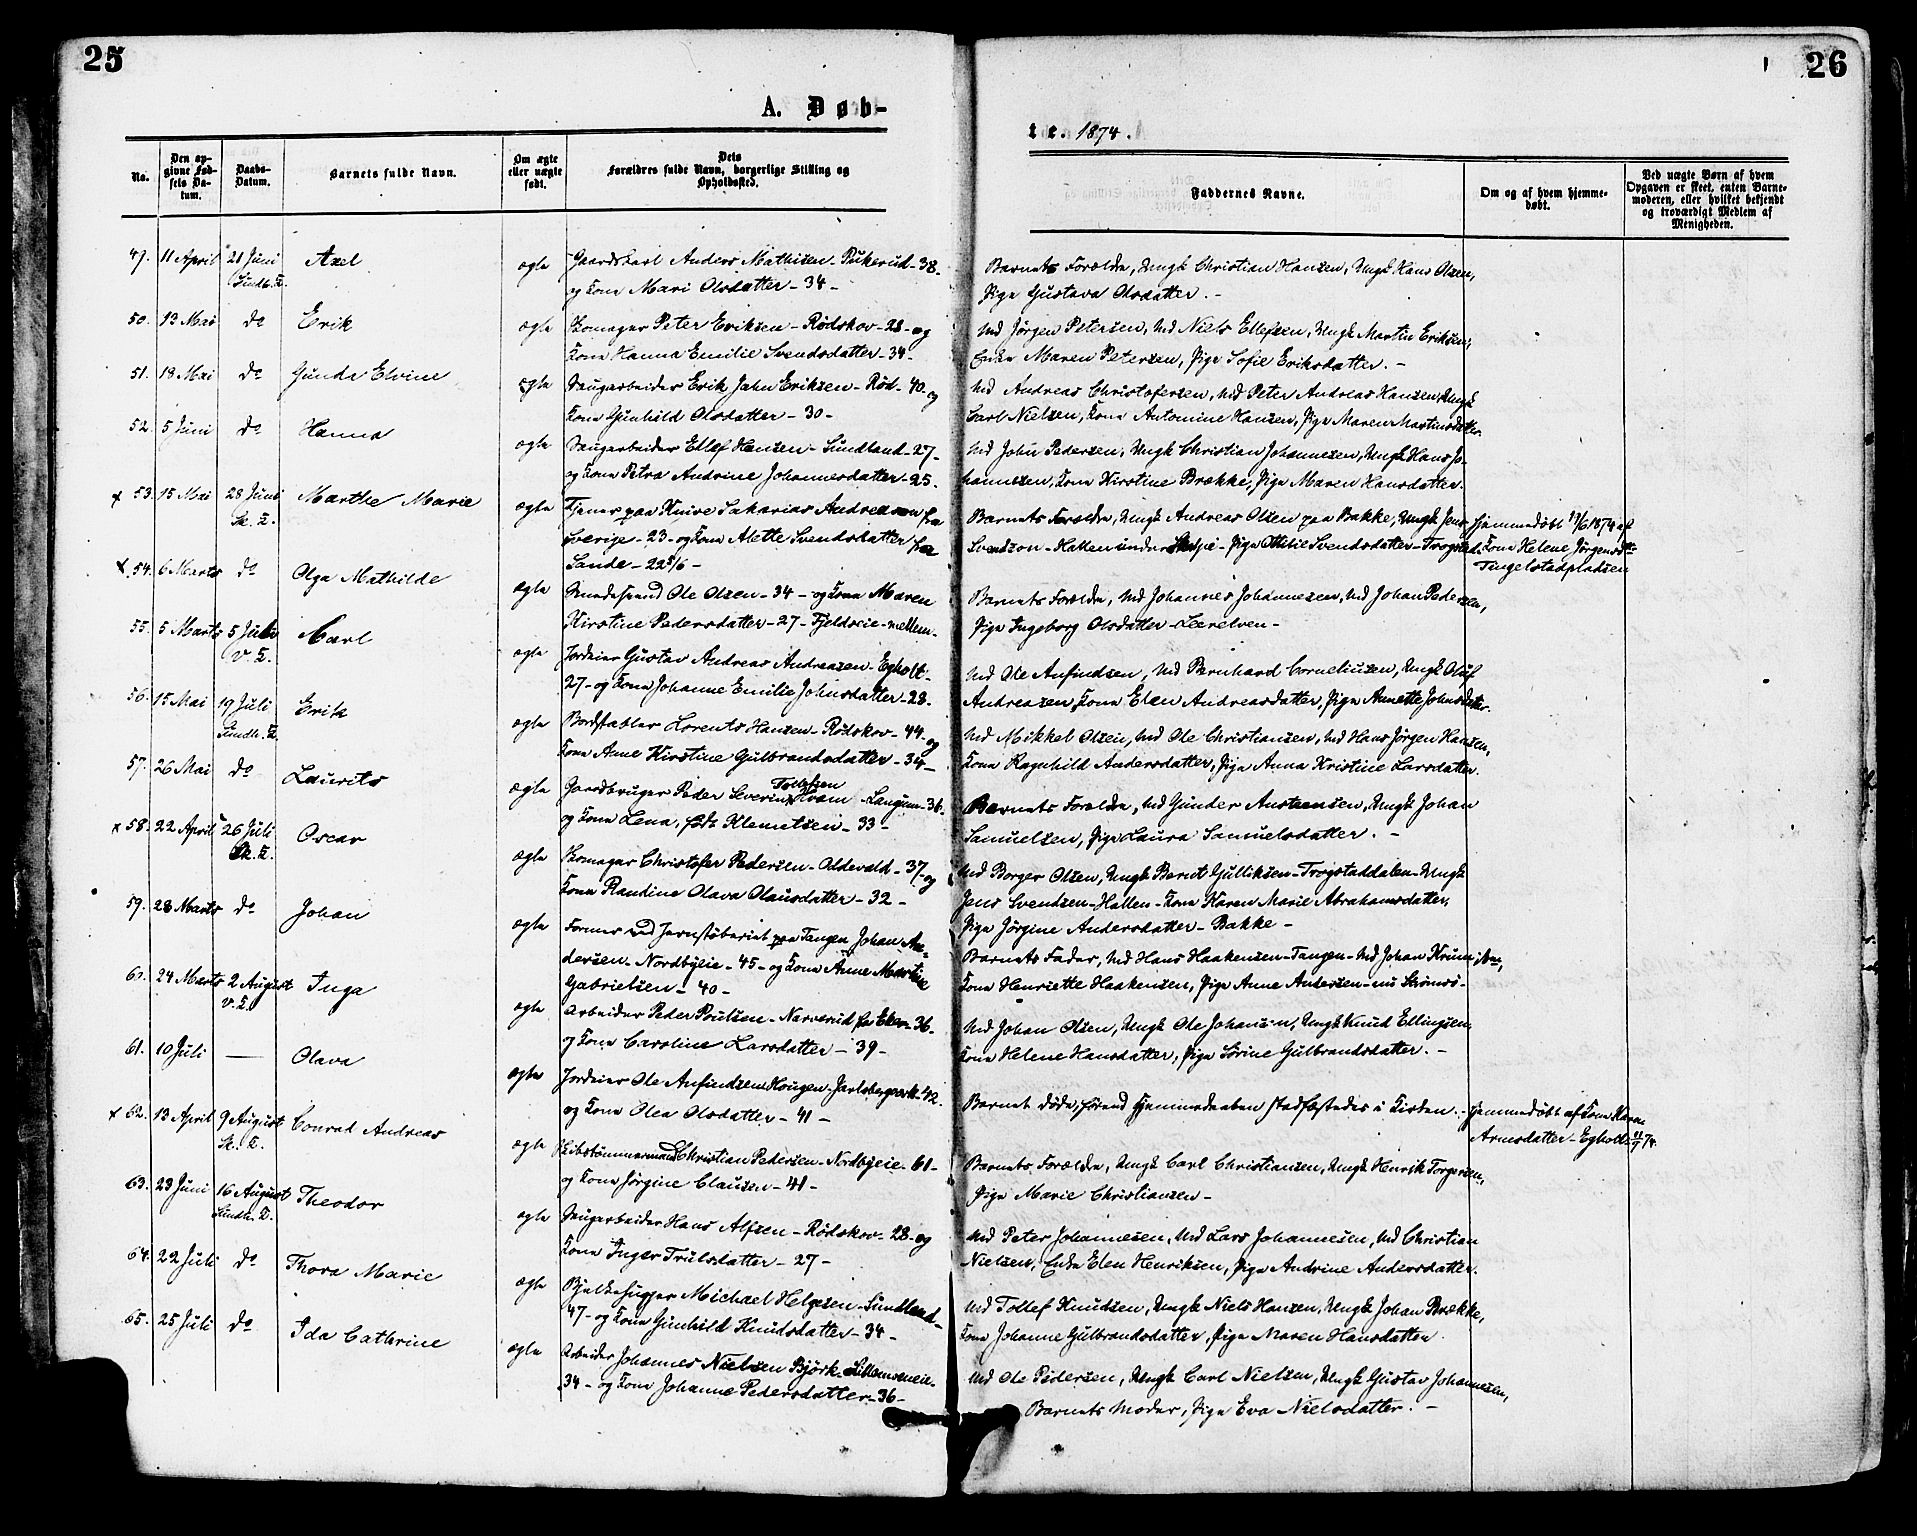 25
26
A. Døb-
te. 1874.
No.
Den op-
givne Fød-
sels Da-
tum.
Daabs-
Datum.
Barnets fulde Navn.
Om ægte
eller uægte
født.
Dets
Forældres fulde Navn, borgerlige Stilling og
Opholdssted.
Faddernes Navne.
Om og af hvem hjemme-
døbt.
Ved uægte Børn af hvem
Opgaven er skeet, enten Barne-
moderen, eller hvilket bekjendt
og troværdigt Medlem af
Menigheden.
49. 11 April 21 Juni Axel ægte Gaardskarl Anders Mathisen - Pukerud - 38 -
Sundh. K. og Kone Mari Olsdatter - 34 -
Barnets Forældre, Ungk Christian Hansen, Ungk Hans Olsen,
Pige Gustava Olsdatter. -
50. 13 Mai do Erik ægte Peter Eriksen - Rødskov - 28 - og
Kone Hanna Emilie Svendsdatter - 34 -
Md Jørgen Petersen, Md Niels Ellefsen, Ungk Martin Eriksen,
Enke Maren Petersen, Pige Sofie Eriksdatter. -
51. 18 Mai do Gunda Elvine ægte Saugarbeider Erik John Eriksen - Rød - 40 - og
Kone Gunhild Olsdatter - 30 -
Md Andreas Christofersen, Md Peter Andreas Hansen, Ungk
Carl Nielsen, Kone Antomine Hansen, Pige Maren Martinsdatter.
52. 5 Juni do Hanna ægte Saugarbeider Ellef Hansen - Sundland - 27 -
og Kone Petra Andrine Johannesdatter - 25.
Md John Pedersen, Ungk Christian Johannesen, Ungk Hans Jo-
hannesen, Kone Kirstine Brække, Pige Maren Hansdatter.
x 53. 15 Mai 28 Juni Marthe Marie ægte Tjener paa Knive Sakarias Andreason fra
Sk. K. Sverige - 23 - og Kone Alette Svendsdatter fra
Sande - 22 5/6 -
Barnets Forældre, Ungk Andreas Olsen paa Bakke, Ungk Jens
Svendson - Hallen under - Pige Ottilie Svendsdatter - Trogstad.
Hjemmedøbt 17/6 1874 af
Kone Helene Jørgensdtr
Tingelstadpladsen
x 54. 6 Marts do Olga Mathilde ægte Ole Olsen - 34 - og Kone Maren
Kirstine Pedersdatter - 27 - Fjeldseie - mellem -
Barnets Forældre, Md Johannes Johannesen, Md Johan Pedersen,
Pige Ingeborg Olsdatter - Leerelven -
55. 5 Marts 5 Juli Karl ægte Jordeier Gustav Andreas Andreasen - Egholt -
V. K. 27 - og Kone Johanne Emilie Johnsdatter - 28.
Md Ole Anfindsen, Md Bernhard Corneliusen, Ungk Oluf
Andreasen, Kone Elen Andreasdatter, Pige Annette Johnsdatter.
56. 15 Mai 19 Juli Erik ægte Bordstabler Lorents Hansen - Rødskov - 44 - og
Sundh. K. Kone Anne Kirstine Gulbrandsdatter - 34 -
Md Mikkel Olsen, Md Ole Christiansen, Md Hans Jørgen Hansen,
Kone Ragnhild Andersdatter, Pige Anna Kristine Larsdatter.
57. 26 Mai do Laurits ægte Gaardbruger Peder Severin Tollefsen Hvam - Langum - 36 -
og Kone Lena, født Klemetsen - 33 -
Barnets Forældre, Md Gunder Austensen, Ungk Johan
Samuelsen, Pige Laura Samuelsdatter. -
x 58. 22 April 26 Juli Oscar ægte Christofer Pedersen - Oldevald - 37 - og
Sk. K. Kone Randine Olava Olausdatter - 32 -
Md Borger Olsen, Ungk Bernt Gulliksen - Trogstaddalen - Ungk
Jens Svendsen - Hallen - Kone Karen Marie Abrahamsdatter,
Pige Jørgine Andersdatter - Bakke -
59. 28 Marts do Johan ægte Former ved Jernstøberiet paa Tangen Johan An-
dersen - Nordbyeie - 45 - og Kone Anne Martine
Gabrielsen - 40 -
Barnets Fader, Md Hans Haakensen - Tangen - Md Johan Krum
Kone Henriette Haakensen, Pige Anne Andersen - nu Strømsø -
60. 24 Marts 2 August Inga ægte Arbeider Peder Poulsen - Narverud fra Eker - 36 -
V. K. og Kone Caroline Larsdatter - 39 -
Md Johan Olsen, Ungk Ole Johansen, Ungk Knud Ellingsen,
Kone Helene Hansdatter, Pige Sørine Gulbrandsdatter. -
61. 10 Juli — Olava ægte Jordeier Ole Anfindsen Hougen - Jarlsbergverk - 42.
og Kone Olea Olsdatter - 41 -
Barnet døde, førend Hjemmedaaben stadfæstedes i Kirken. -
Hjemmedøbt af Kone Karen
Arnesdatter - Egholt 11/7 74.
x 62. 13 April 9 August Conrad Andreas ægte Skibstømmermand Christian Pedersen - Nordbyeie - 61 -
Sk. K. og Kone Jørgine Clausen - 41 -
Barnets Forældre, Ungk Carl Christiansen, Ungk Henrik Torgersen,
Pige Marie Christiansen -
63. 23 Juni 16 August Theodor ægte Saugarbeider Hans Alfsen - Rødskov - 28 - og
Sundh. K. Kone Inger Trulsdatter - 27 -
Md Peter Johannesen, Md Lars Johannesen, Md Christian
Nielsen, Enke Elen Henriksen, Pige Andrine Andersdatter.
64. 22 Juli do Thora Marie ægte Bjelkehugger Michael Helgesen - Sundland -
47 - og Kone Gunhild Knudsdatter - 34 -
Md Tollef Knudsen, Ungk Niels Hansen, Ungk Johan Brække,
Kone Johanne Gulbrandsdatter, Pige Maren Hansdatter.
65. 25 Juli do Ida Cathrine ægte Arbeider Johannes Nielsen Bjørk -
34 - og Kone Johanne Pedersdatter - 36 -
Md Ole Pedersen, Ungk Carl Nielsen, Ungk Gustav Johannesen,
Barnets Moder, Pige Eva Nielsdatter. -